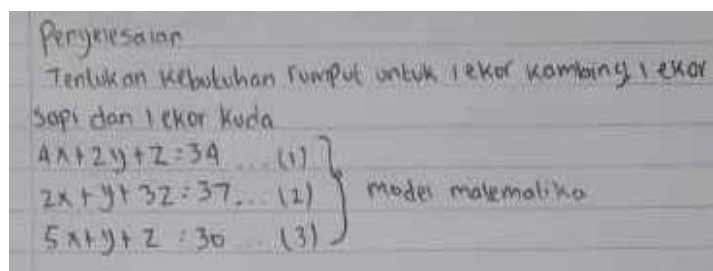 Penyelesaian
Tentukan kebutuhan rumput untuk 1 ekor kambing 1 ekor
sapi dan 1 ekor kuda
4x+2y+z=34 ... (1)
2x+y+3z=37... (2) model matematika
5x+y+z =30 ... (3)